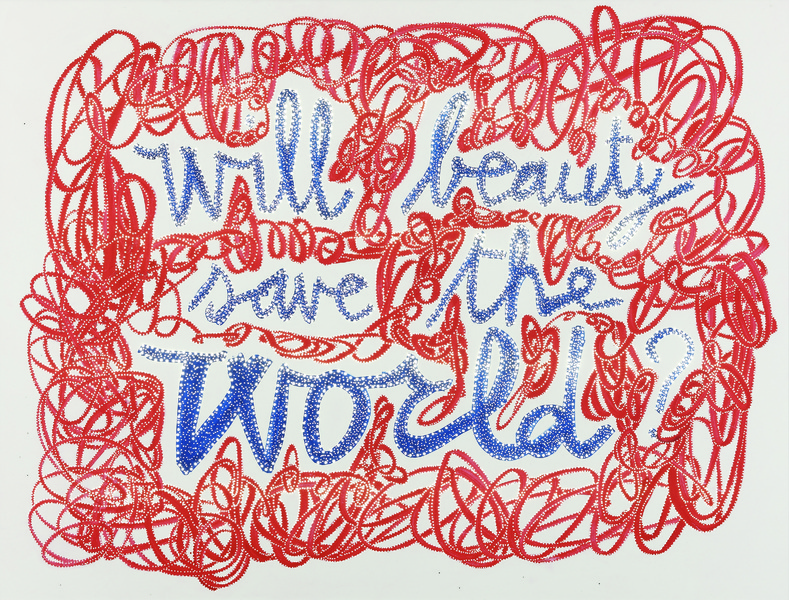 will beauty
save the
World?